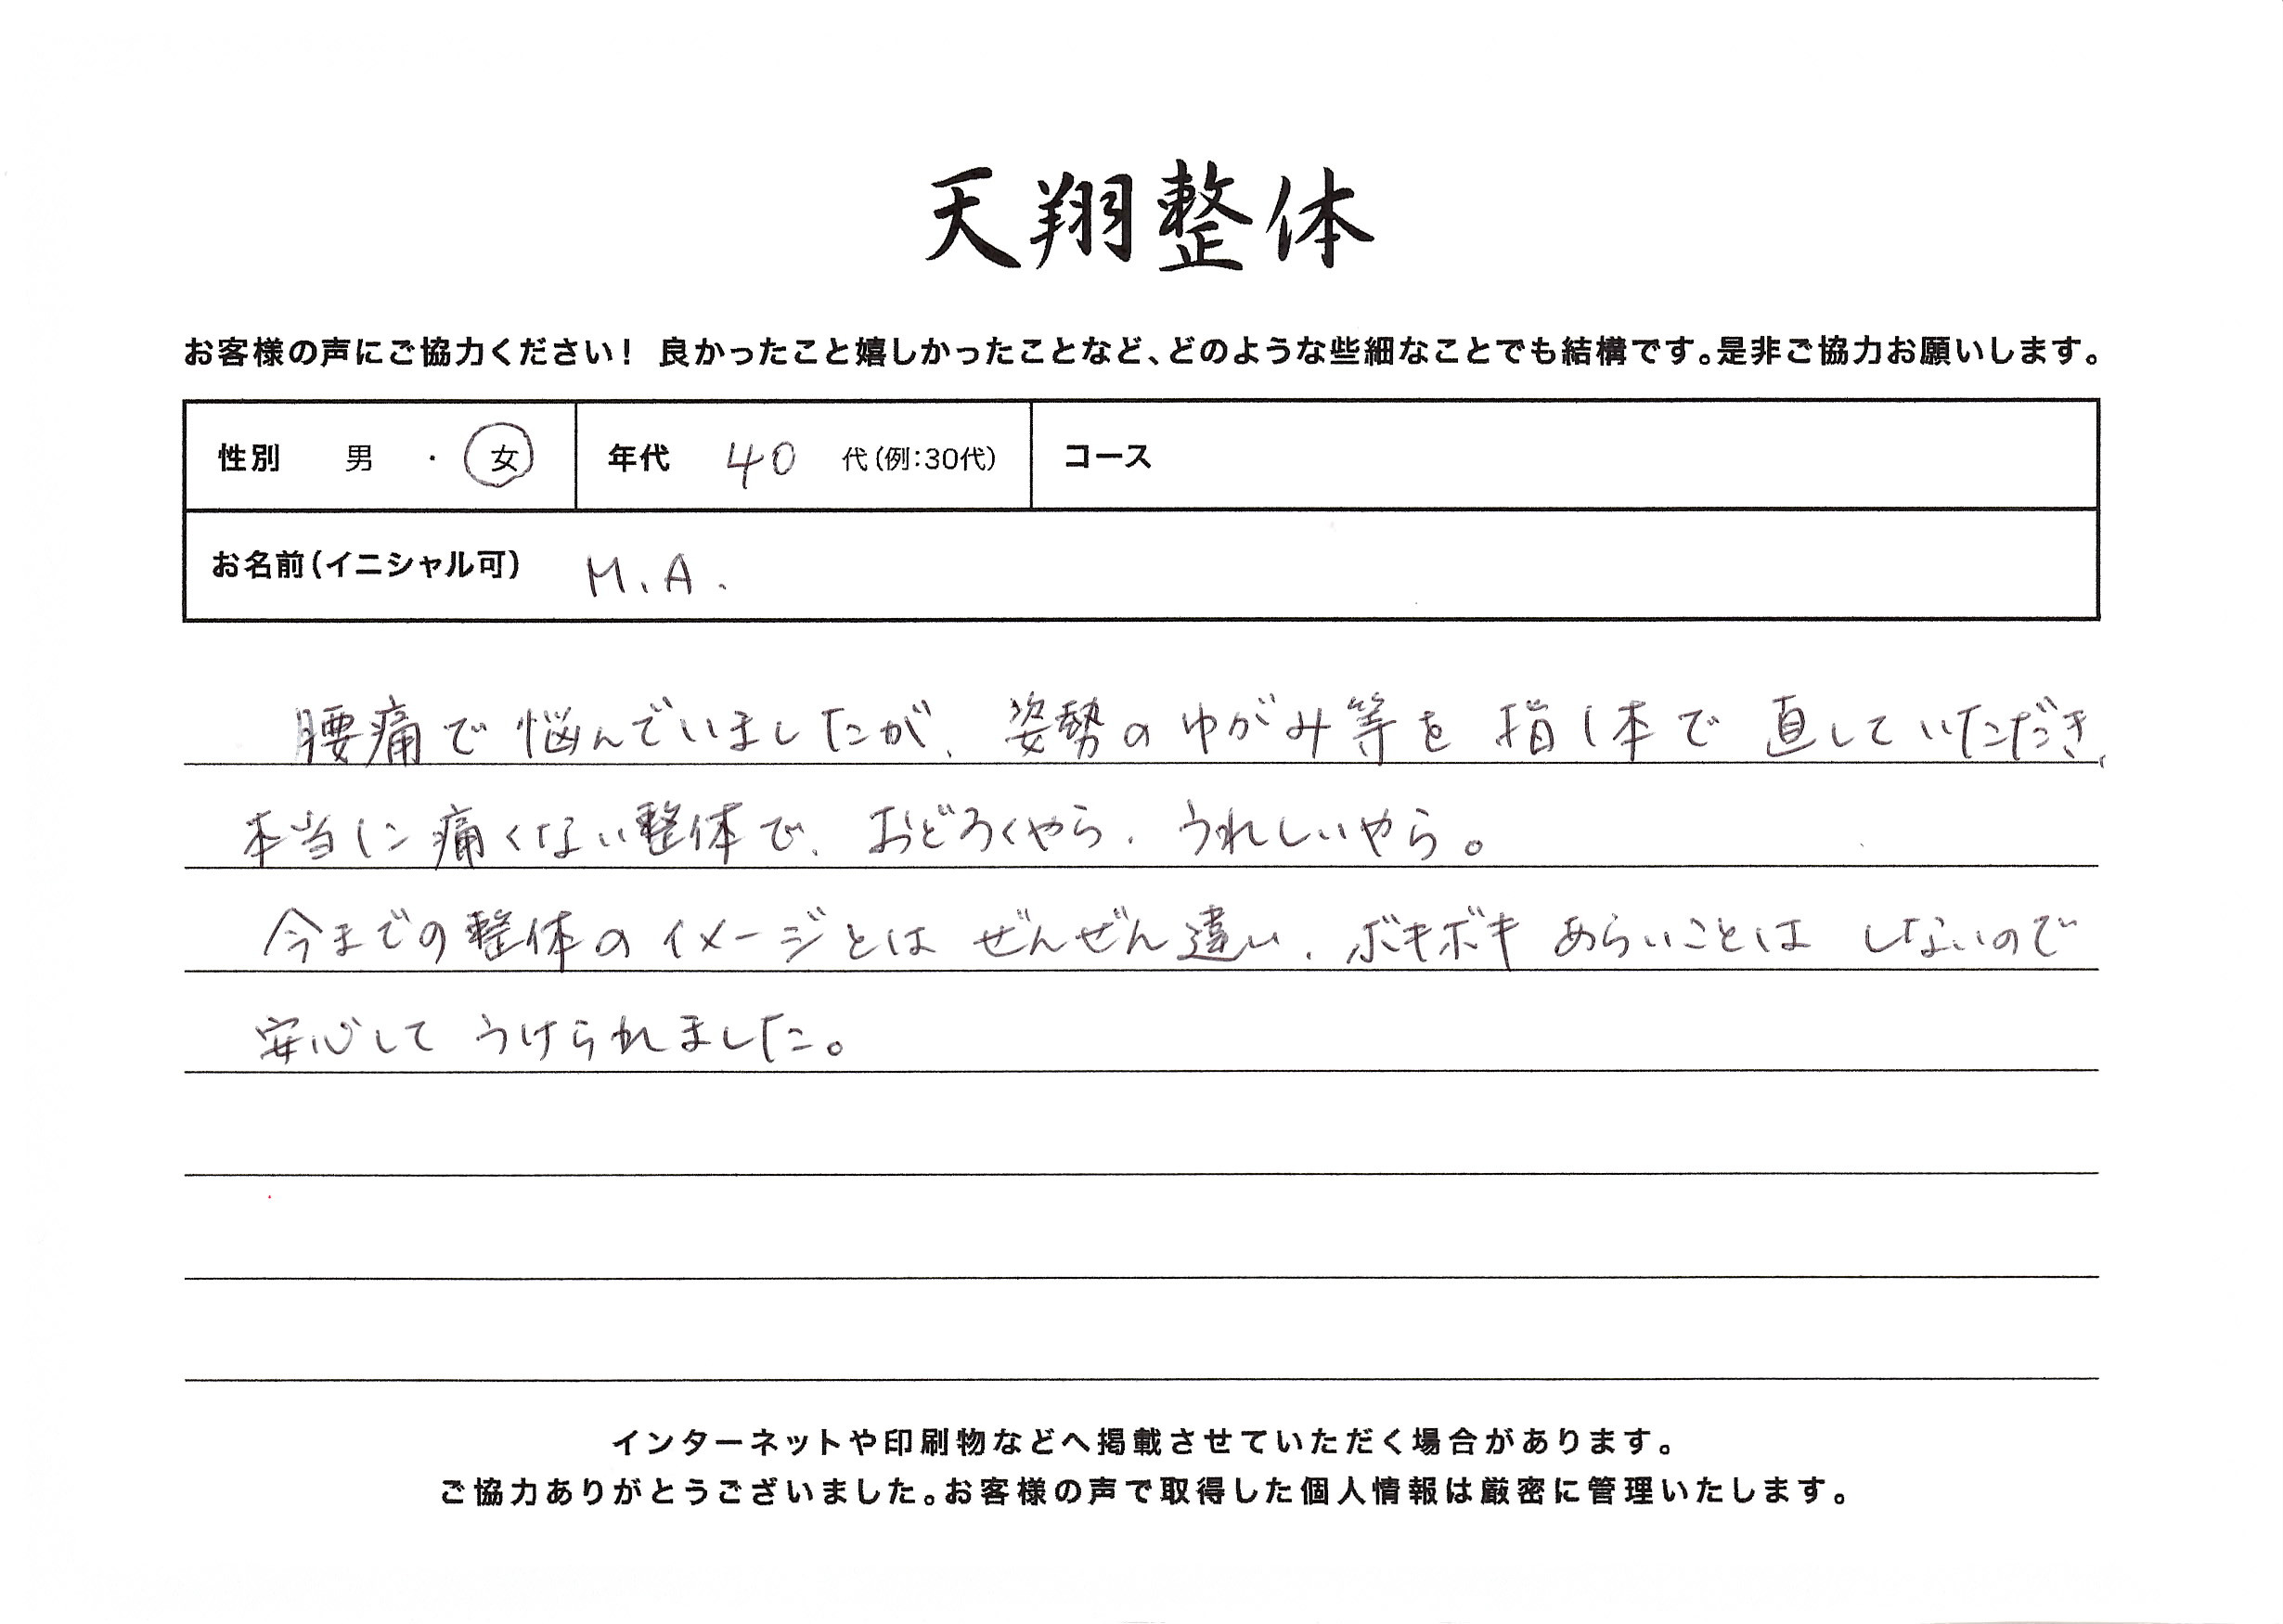 天翔整体
お客様の声にご協力ください！ 良かったこと嬉しかったことなど、どのような些細なことでも結構です。是非ご協力お願いします。
性別 男 ・ 女 年代 40 代(例:30代) コース
お名前(イニシャル可) M.A.
腰痛で悩んでいましたが、姿勢のゆがみ等を指1本で直していただき、
本当に痛くない整体で、おどろくやら、うれしいやら。
今までの整体のイメージとはぜんぜん違い、ボキボキあらいことはしないので
安心してうけられました。
インターネットや印刷物などへ掲載させていただく場合があります。
ご協力ありがとうございました。お客様の声で取得した個人情報は厳密に管理いたします。